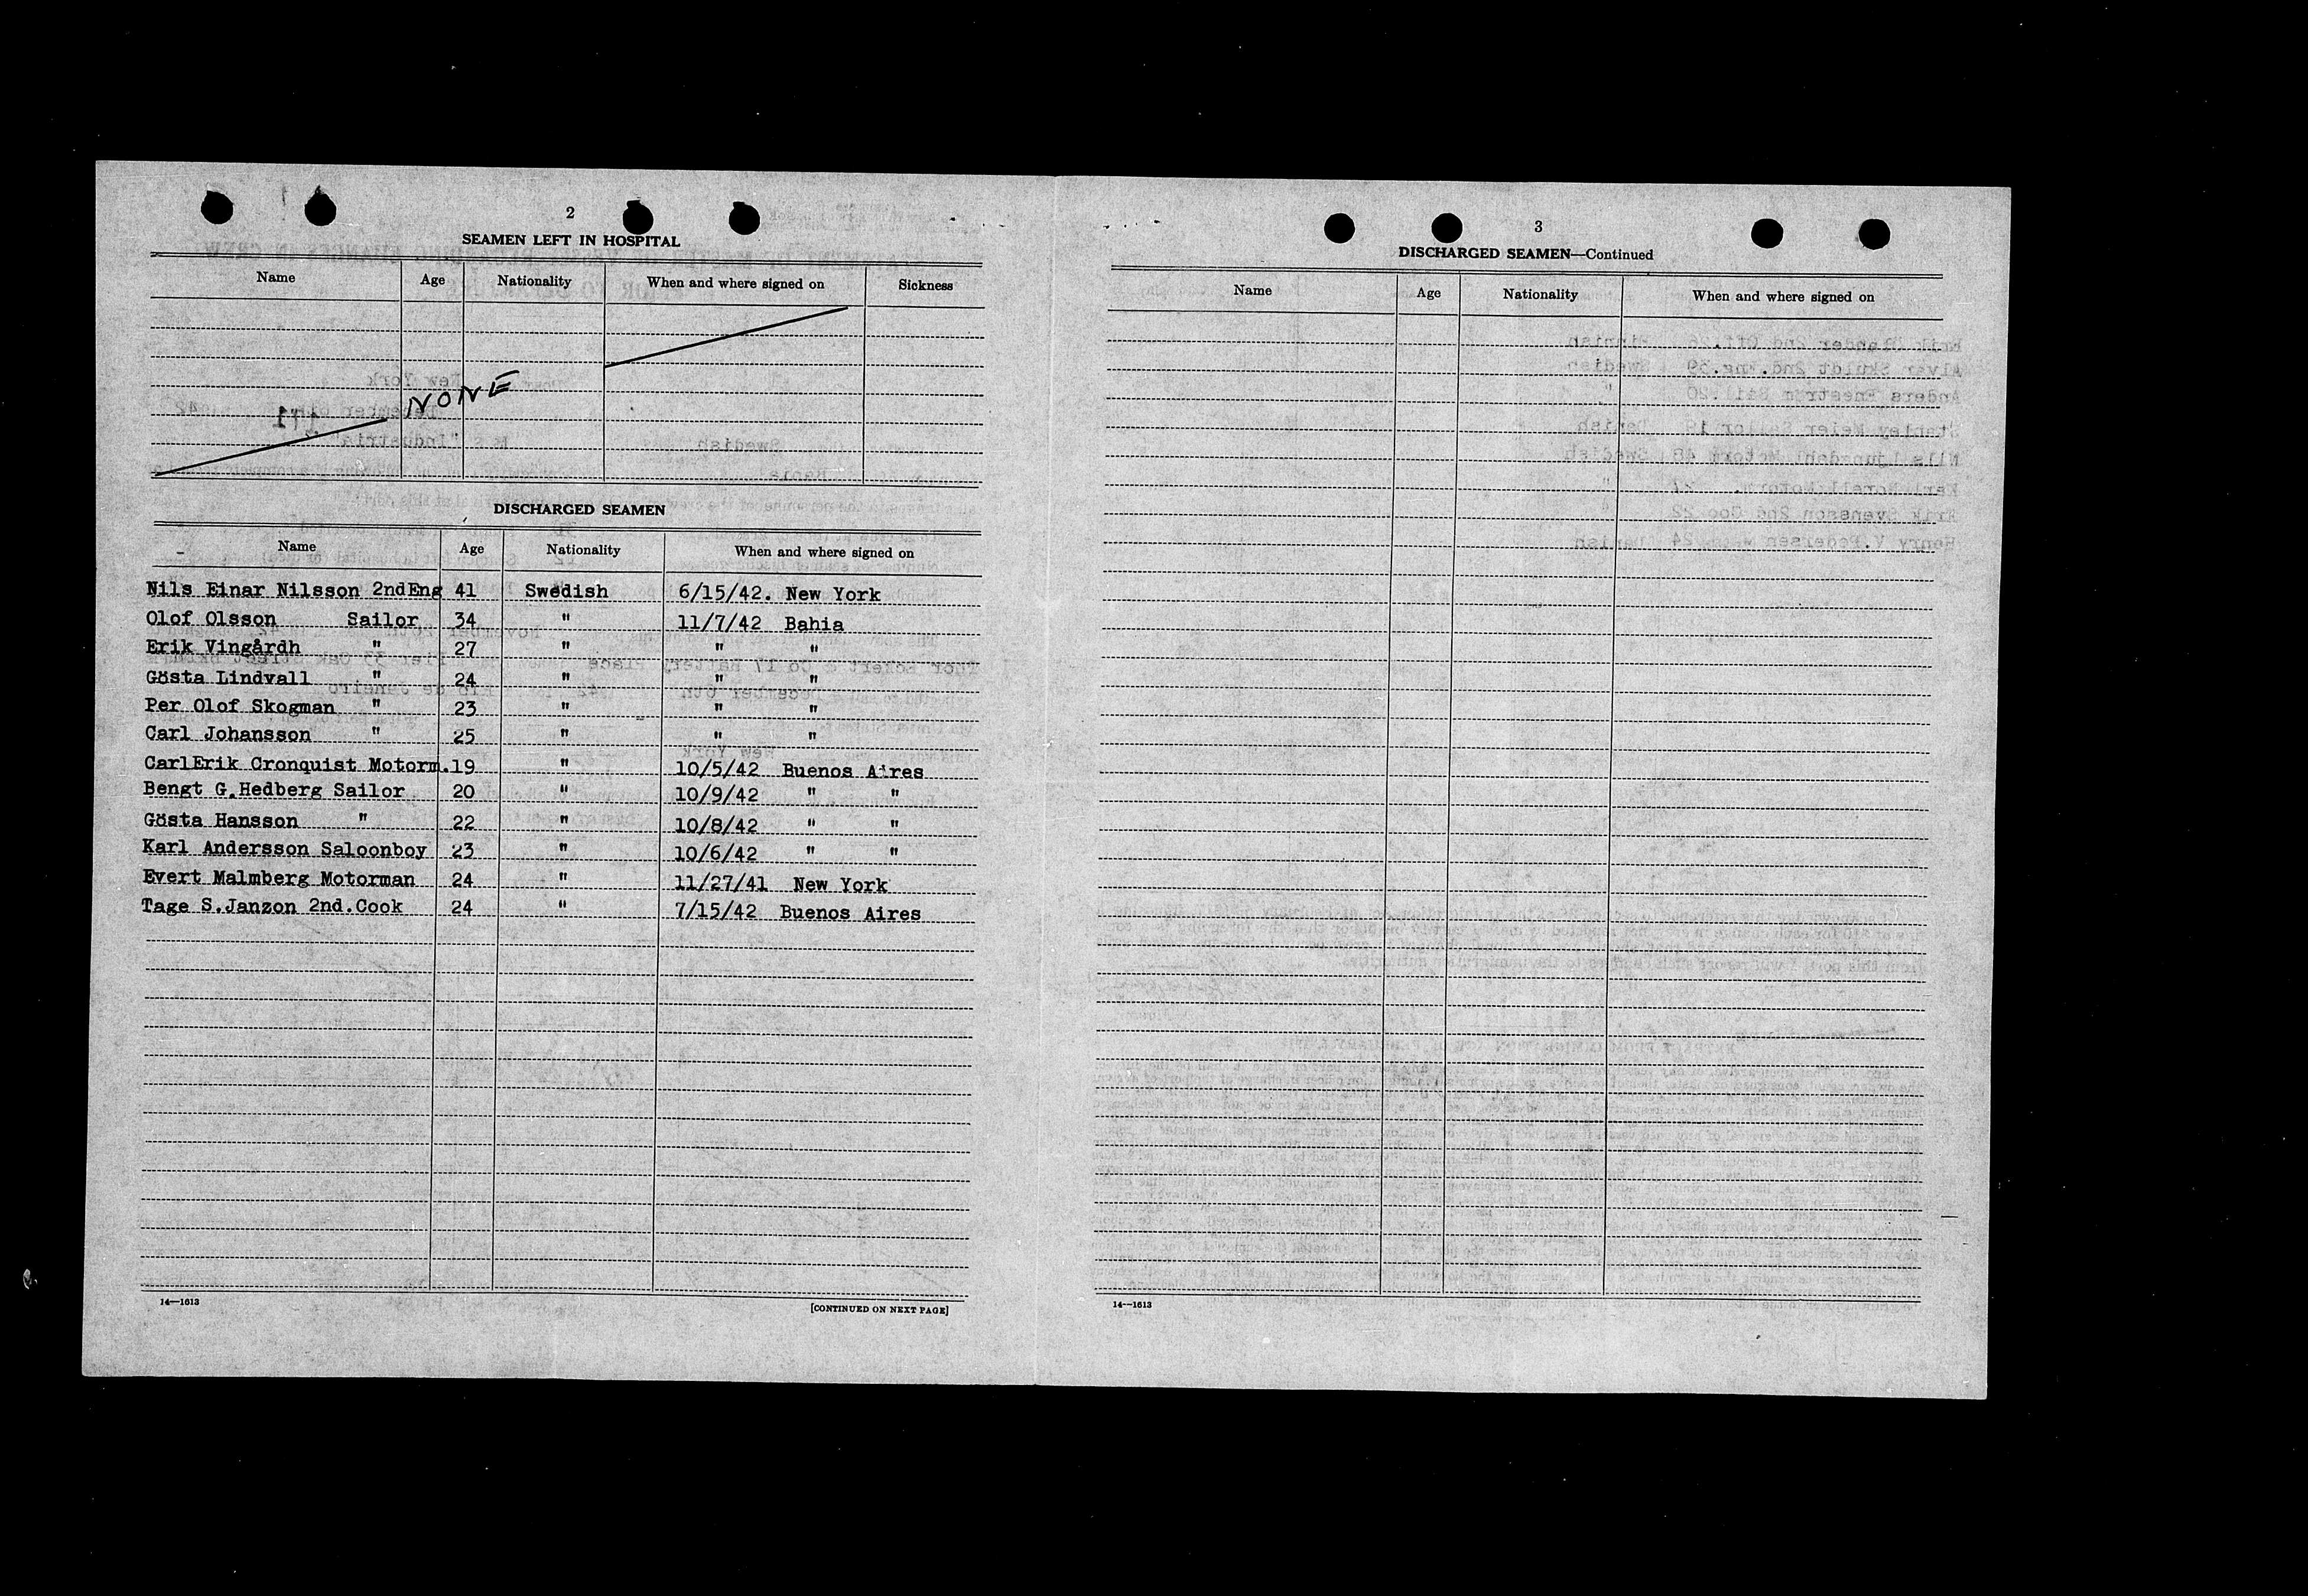 2
SEAMEN LEFT IN HOSPITAL
Name Age Nationality When and where signed on Sickness
NONE
171
DISCHARGED SEAMEN
Name Age Nationality When and where signed on
Nils Einar Nilsson 2ndEng 41 Swedish 6/15/42. New York
Olof Olsson Sailor 34 " 11/7/42 Bahia
Erik Vingårdh " 27 " " "
Gösta Lindvall " 24 " " "
Per Olof Skogman " 23 " " "
Carl Johansson " 25 " " "
CarlErik Cronquist Motorm. 19 " 10/5/42 Buenos Aires
Bengt G.Hedberg Sailor 20 " 10/9/42 " "
Gösta Hansson " 22 " 10/8/42 " "
Karl Andersson Saloonboy 23 " 10/6/42 " "
Evert Malmberg Motorman 24 " 11/27/41 New York
Tage S.Janzon 2nd.Cook 24 " 7/15/42 Buenos Aires
14—1613 [CONTINUED ON NEXT PAGE]
3
DISCHARGED SEAMEN—Continued
Name Age Nationality When and where signed on
14—1613